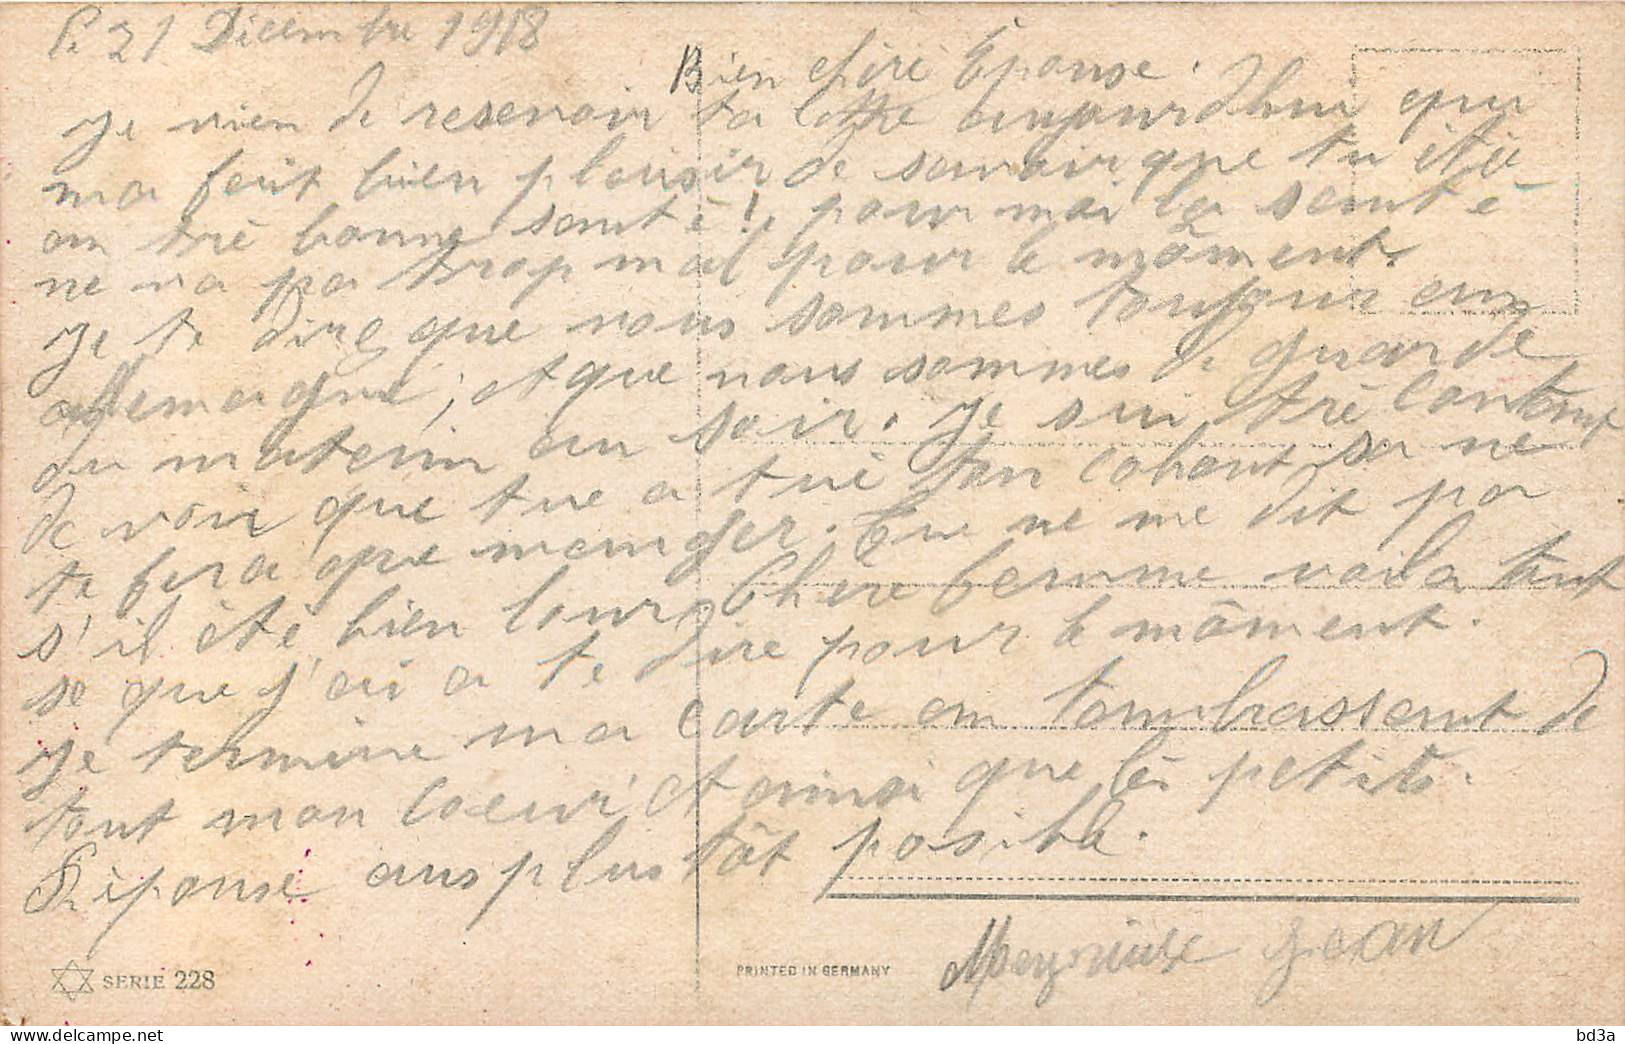 Le 21 Décembre 1918
Bien chère Épouse.
Je vien de resevoir ta lettre aujourdhui qui
ma fait bien plaisir de savoir que tu été
an trè bonne santé! pour moi la santé
ne va pa trop mal pour le môment.
Je te dire que nous sommes toujour an
allemagne, et que nous sommes de guarde
du matin au soir. Je sui trè contant
de voir que tue a tué ton cohont sa ne
te fera que manger. Tue ne me dit pa
s'il été bien lour, Chère femme voila tout
se que j'ai a te dire pour le môment.
Je termine ma carte an tambrassant de
tout mon coeur et ainsi que lés petits.
Réponse aus plus tôt posible.
Jean
SERIE 228
PRINTED IN GERMANY
bd3a